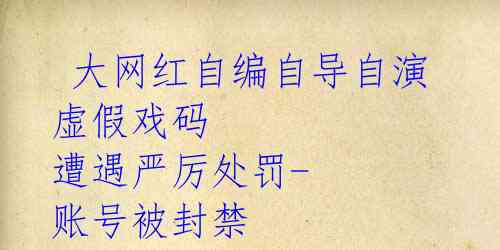 大网红自编自导自演
虚假戏码
遭遇严厉处罚-
账号被封禁